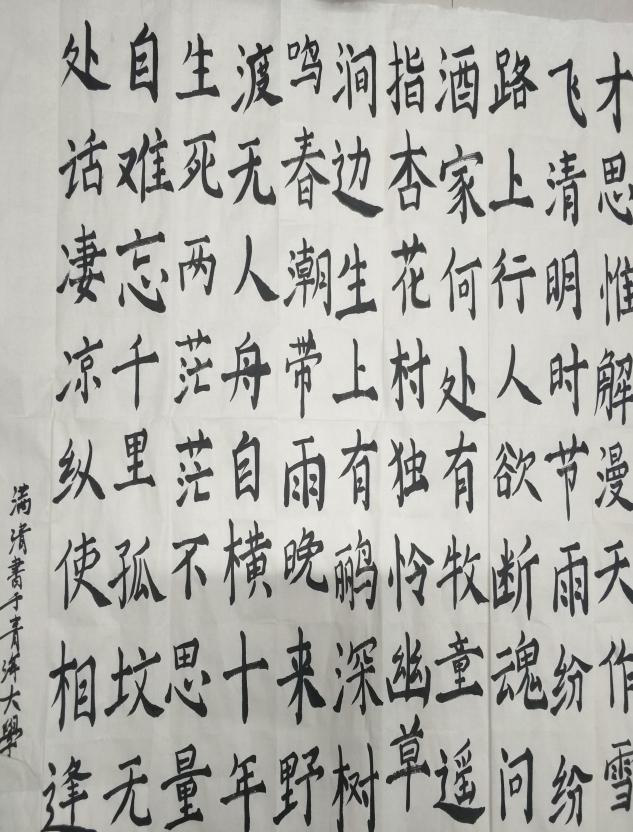 才思惟解漫天作雪
飞清明时节雨纷纷
路上行人欲断魂问
酒家何处有牧童遥
指杏花村独怜幽草
涧边生上有鹂深树
鸣春潮带雨晚来野
渡无人舟自横十年
生死两茫茫不思量
自难忘千里孤坟无
处话凄凉纵使相逢
满清書于青海大學